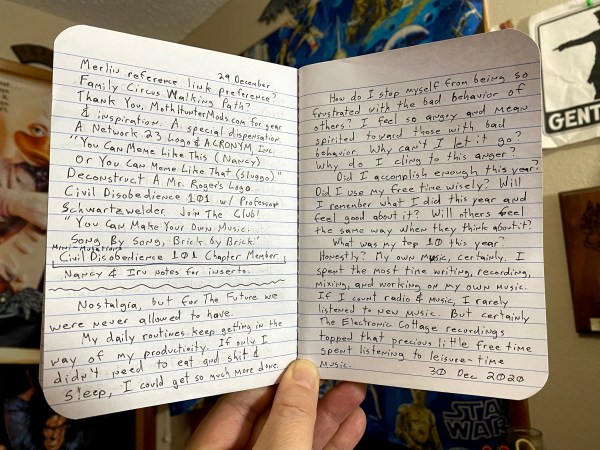 29 December
Merlin reference link preference?
Family Circus Walking Path?
Thank You, MothHunterMods.com for gear
& inspiration. A special dispensation
A Network 23 Logo & ACRONYM, Inc.
"You Can Meme Like This (Nancy)
Or You Can Meme Like That (Sluggo)."
Deconstruct A Mr. Roger's Logo.
Civil Disobedience 101 w/ Professor
Schwartzwelder Join The Club!
"You Can Make Your Own Music:
Song By Song, Brick by Brick."
Mini-Mutations
Civil Disobedience 101 Chapter Member
Nancy & Irv Notes for inserts.
Nostalgia, but for The Future we
were never allowed to have.
My daily routines keep getting in the
way of my productivity. If only I
didn't need to eat and shit &
sleep, I could get so much more done.
How do I stop myself from being so
frustrated with the bad behavior of
others? I feel so angry and mean
spirited toward those with bad
behavior. Why can't I let it go?
Why do I cling to this anger?
Did I accomplish enough this year?
Did I use my free time wisely? Will
I remember what I did this year and
feel good about it? Will others feel
the same way when they think about it?
What was my top 10 this year?
Honestly? My own music, certainly. I
spent the most time writing, recording,
mixing, and working on my own music.
If I count radio & music, I rarely
listened to new music. But certainly
The Electronic Cottage recordings
topped that precious little free time
spent listening to leisure-time
music.
30 Dec 2020
GENT
STAR
WAR